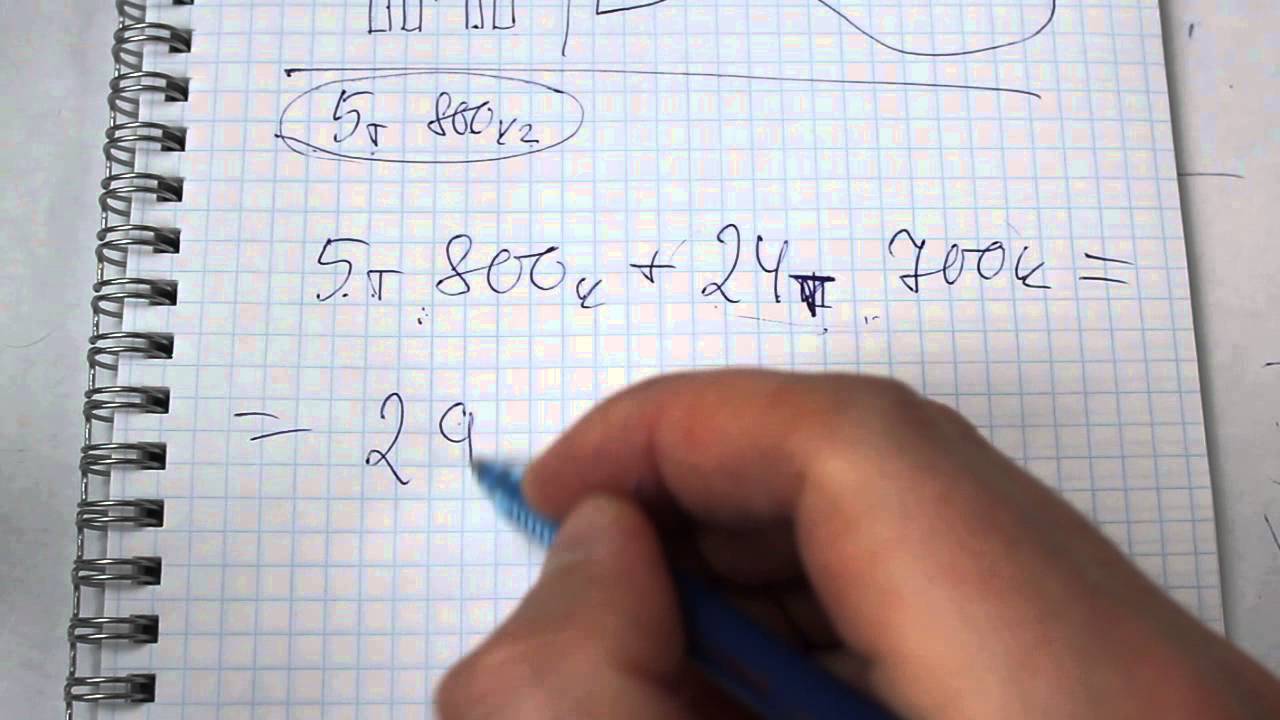 5т 800кг
5т 800к + 24т 700к =
= 29